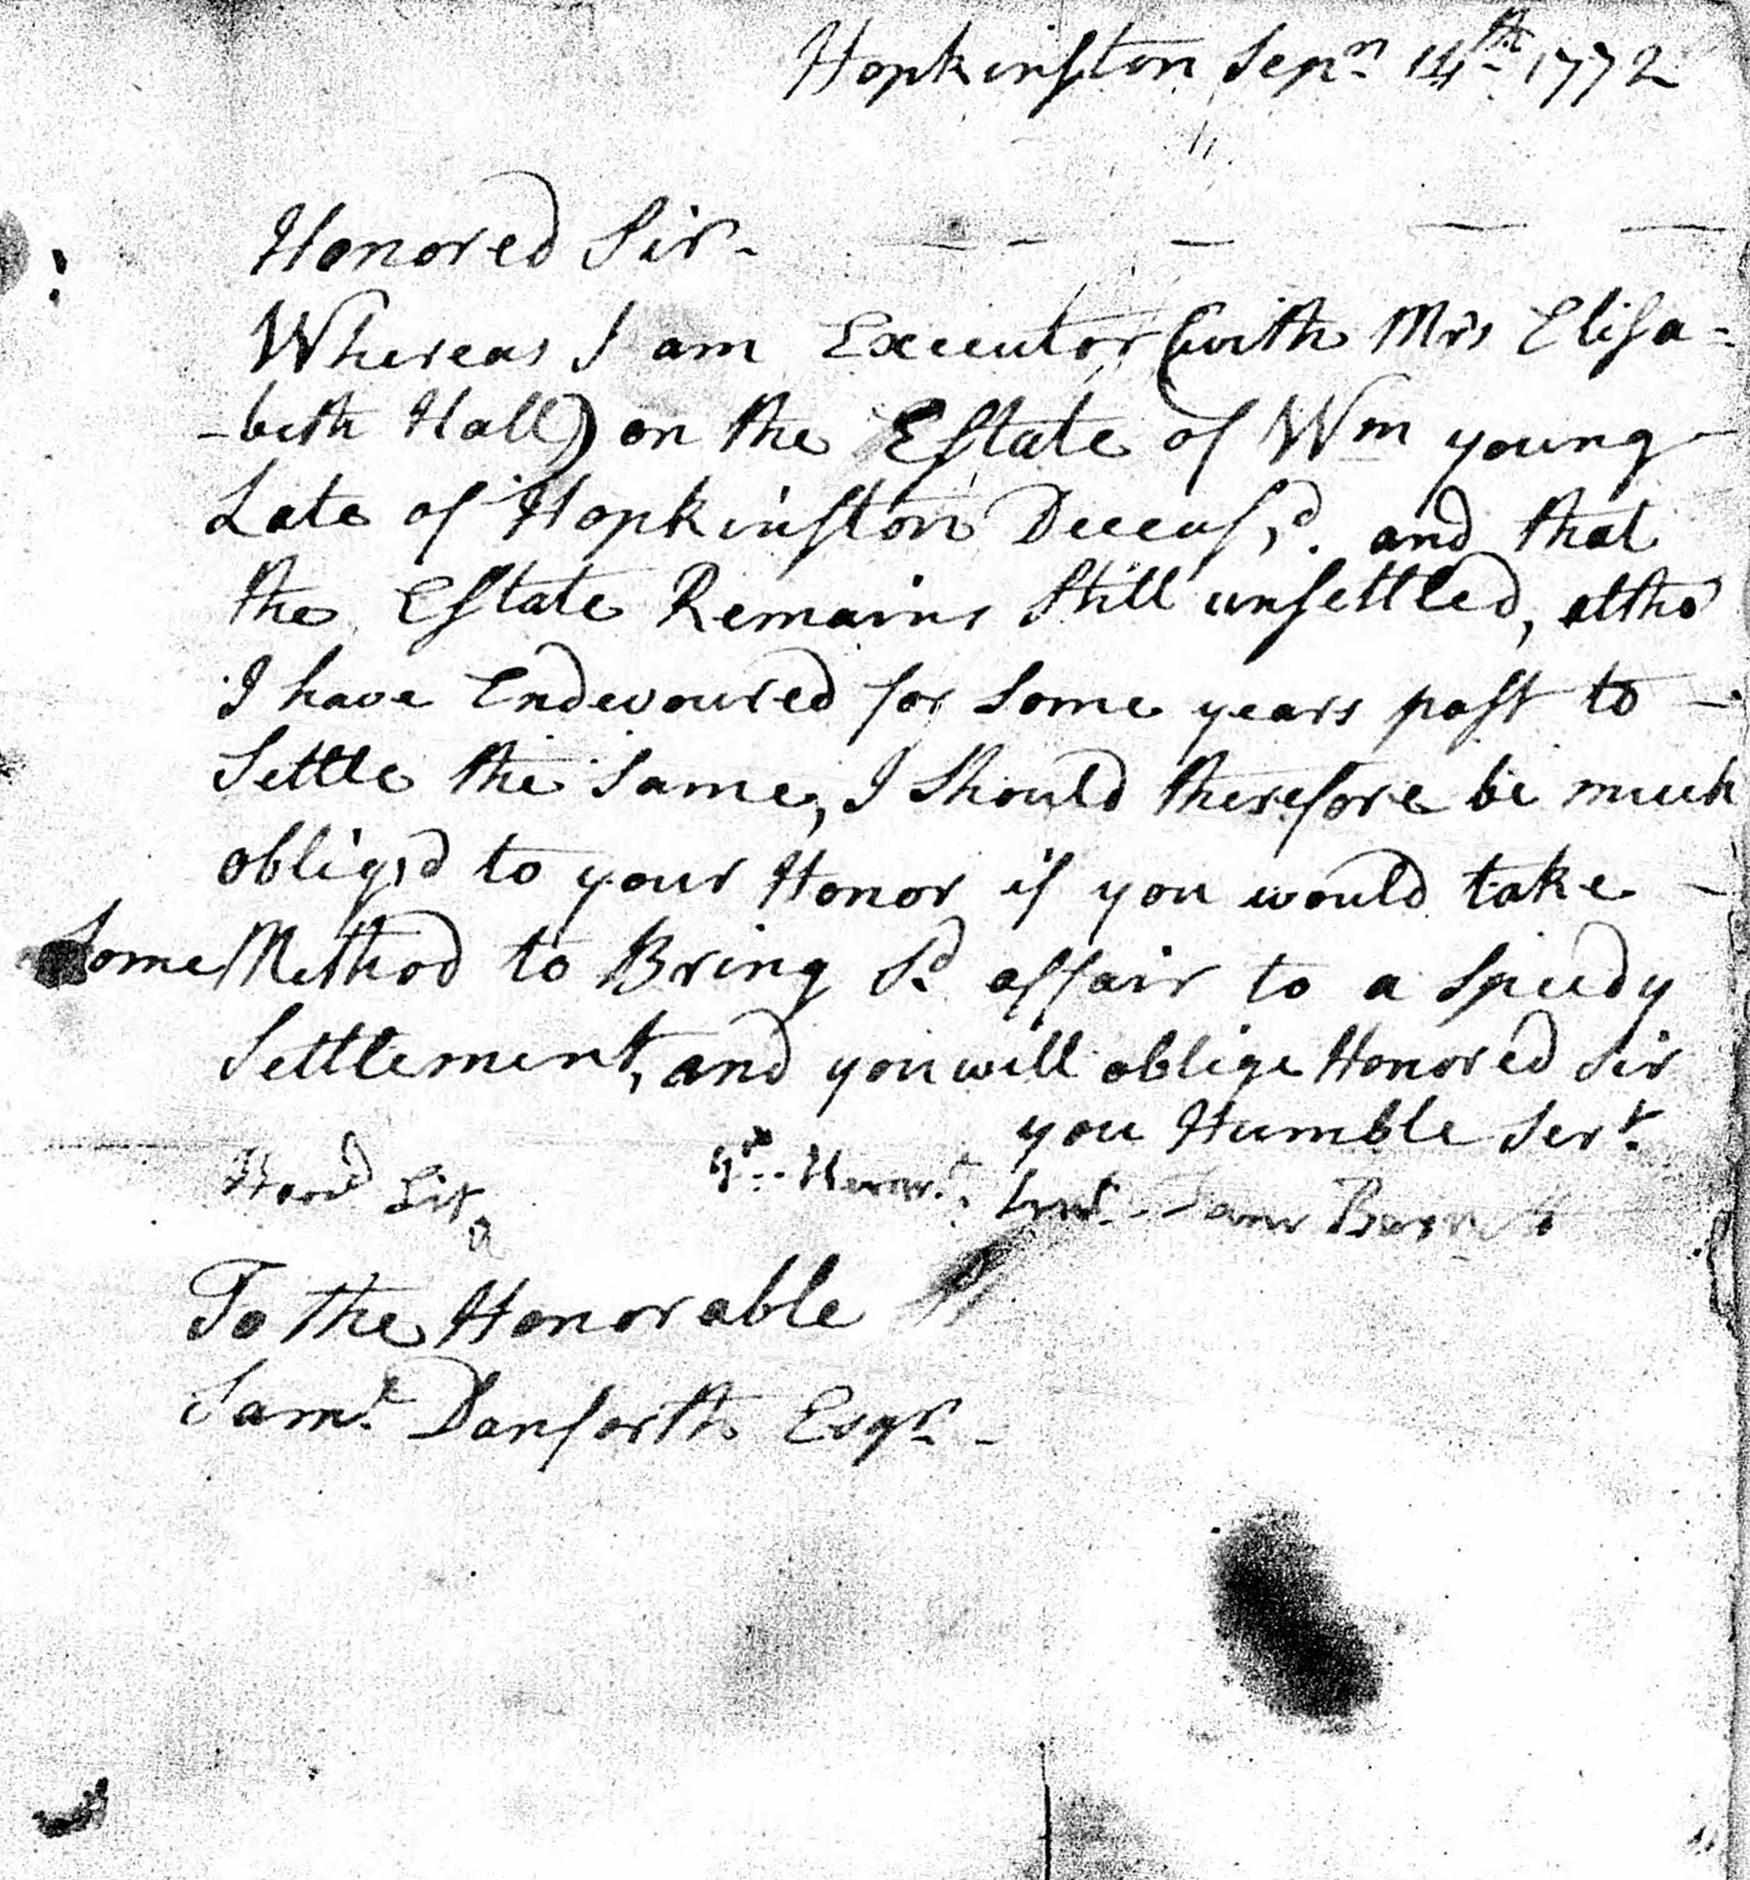 Hopkinston Sepr 14th 1772
Honored Sir -
Whereas I am Executor (with Mrs Elisa-
-beth Hall) on the Estate of Wm young
Late of Hopkinston Deceas,d. and that
the Estate Remains Still unsettled, altho
I have Endevoured for Some years past to -
Settle the Same, I Should therefore be much
oblig,d to your Honor if you would take -
Some Method to Bring Sd affair to a Speedy
Settlement, and you will oblige Honored Sir
you Humble Sert.
Hond Sir
To the Honorable
Saml Danforth Esqr -